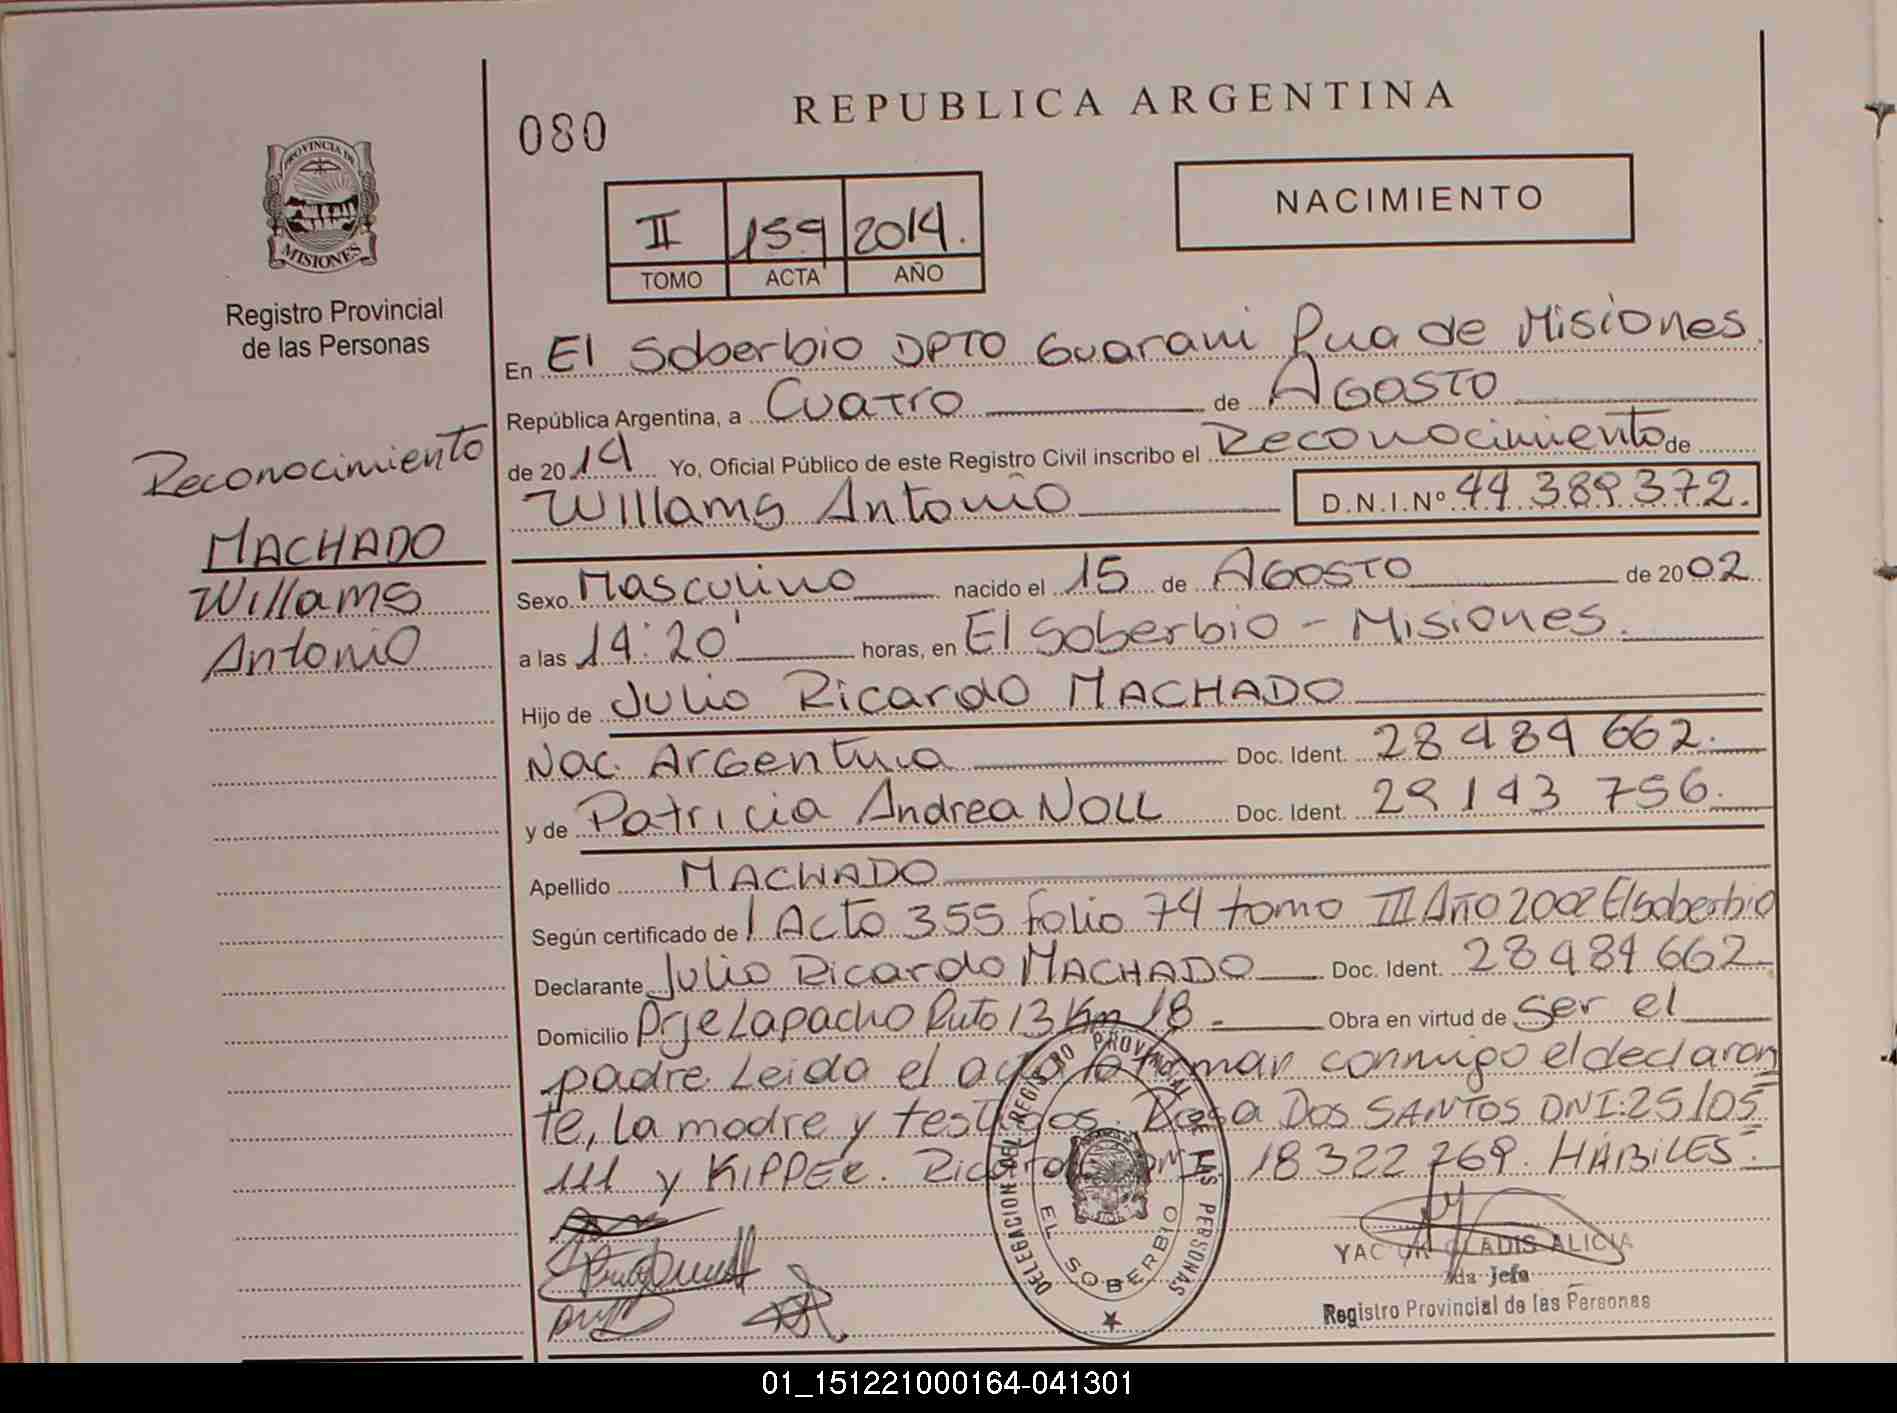 080
REPUBLICA ARGENTINA
NACIMIENTO
II 159 2014.
TOMO ACTA AÑO
PROVINCIA DE
MISIONES
Registro Provincial
de las Personas
Reconocimiento
MACHADO
Willams
Antonio
En El Soberbio DPTO Guarani Pua de Misiones
República Argentina, a Cuatro de Agosto
de 2014 Yo, Oficial Público de este Registro Civil inscribo el Reconocimiento de
Willams Antonio D.N.I.Nº 44.389.372.
Sexo Masculino nacido el 15 de Agosto de 2002
a las 14:20' horas, en El Soberbio - Misiones.
Hijo de Julio Ricardo MACHADO
Nac. Argentina Doc. Ident. 28 484 662.
y de Patricia Andrea NOLL Doc. Ident. 29 143 756.
Apellido MACHADO
Según certificado de Acta 355 folio 74 tomo III Año 2002 El Soberbio
Declarante Julio Ricardo MACHADO Doc. Ident. 28 484 662.
Domicilio Pje Lapacho Ruta 13 Km 18 - Obra en virtud de ser el
padre. Leida el acta la firman conmigo el declaran
te, la madre y testigos. Rosa DOS SANTOS DNI: 25 105
111 y KIPPER. Ricardo DNI 18 322 769. HÁBILES.
DELEGACION DEL REGISTRO PROVINCIAL DE LAS PERSONAS
EL SOBERBIO
GLADIS ALICIA
Jefa
Registro Provincial de las Personas
01_151221000164-041301